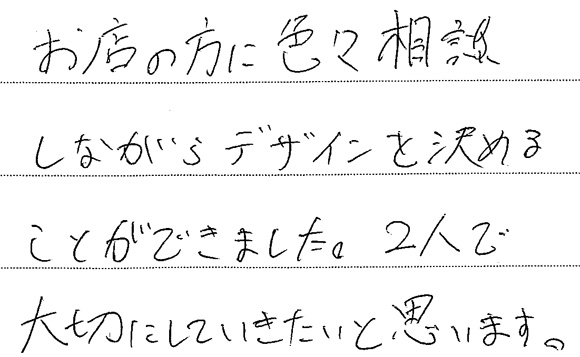 お店の方に色々相談
しながらデザインを決める
ことができました。2人で
大切にしていきたいと思います。